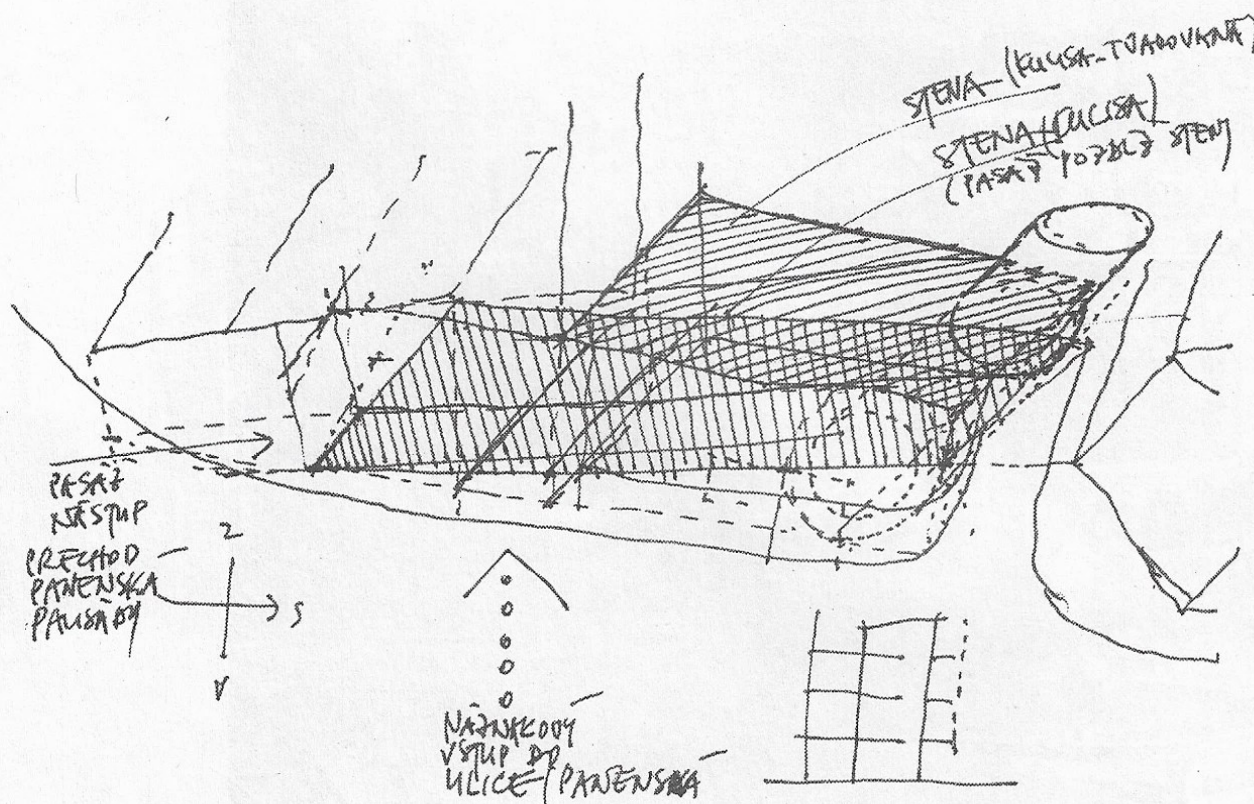 STENA (KULISA-TVAROVANÁ)
STENA (KULISA)
(PASÁŽ POZDĹŽ STENY
PASÁŽ
NÁSTUP
PRECHOD
PANENSKÁ
PALISÁDY
Z
S
V
NÁZNAKOVÝ
VSTUP DO
ULICE PANENSKÁ